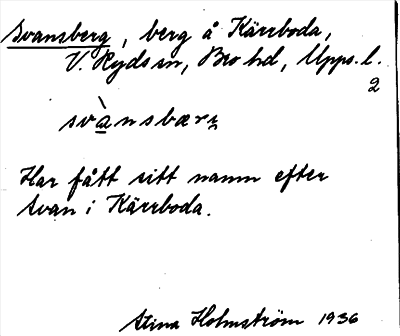 Svansberg, berg å Kärrboda,
V. Ryds sn, Bro hd, Upps. l.
2
svànsbærɩ̯
Har fått sitt namn efter
Svan i Kärrboda.
Stina Holmström 1936